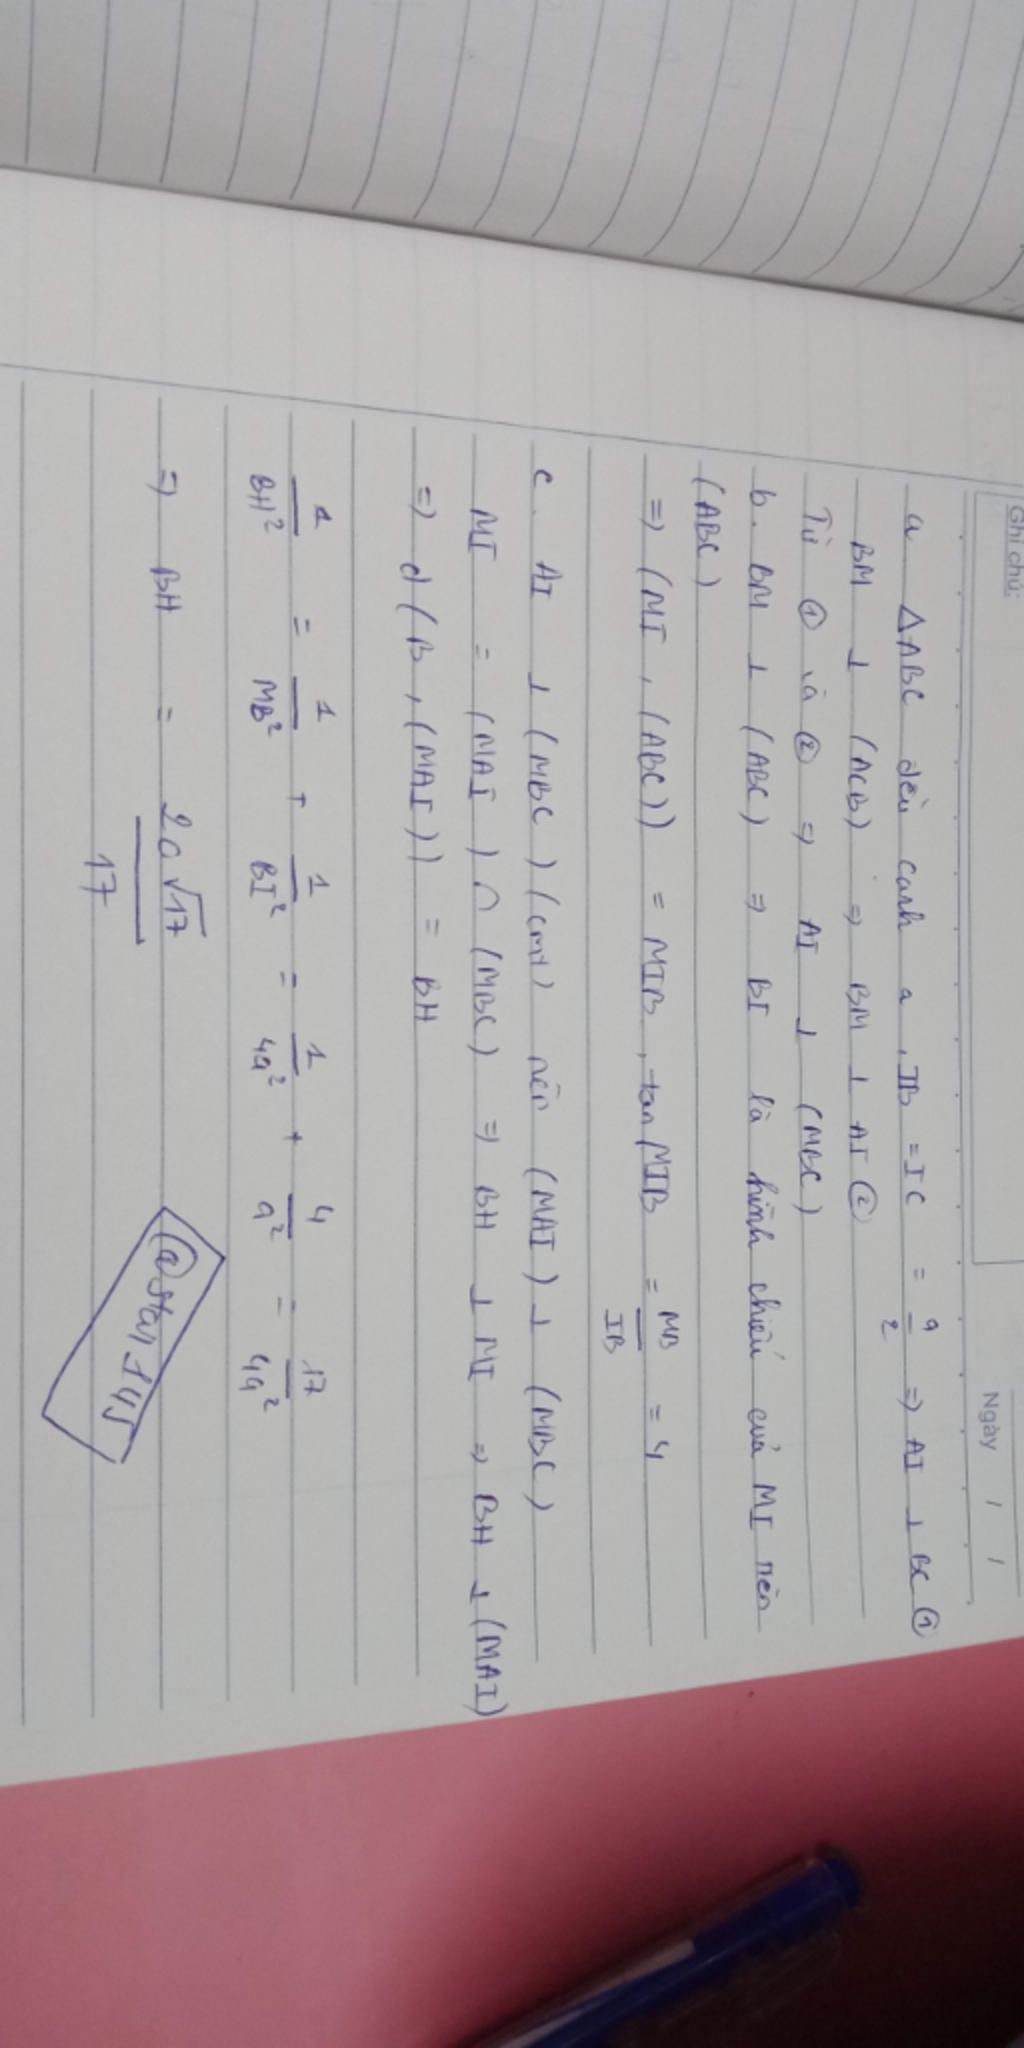 Ghi chú:
Ngày / /
a ΔABC đều cạnh a, IB = IC = a/2 => AI ⊥ BC ①
BM ⊥ (ACB) => BM ⊥ AI ②
Từ ① và ② => AI ⊥ (MBC)
b. BM ⊥ (ABC) => BI là hình chiếu của MI nên
(ABC)
=> (MI, (ABC)) = MIB, tan MIB = MB/IB = 4
c. AI ⊥ (MBC) (cmt) nên (MAI) ⊥ (MBC)
MI = (MAI) ∩ (MBC) => BH ⊥ MI => BH ⊥ (MAI)
=> d(B, (MAI)) = BH
1/BH² = 1/MB² + 1/BI² = 1/4a² + 4/a² = 17/4a²
=> BH = 2a√17/17
@star145